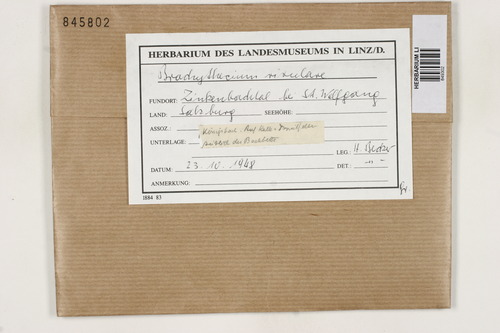 845802
HERBARIUM LI
845802
HERBARIUM DES LANDESMUSEUMS IN LINZ/D.
Brachythecium rivulare
FUNDORT: Zinkenbachtal bei St. Wolfgang
LAND: Salzburg SEEHÖHE:
ASSOZ.:
UNTERLAGE:
Königsbach. Auf
des
LEG.: H. Becker
DATUM: 23. 10. 1948 DET.: -"-
ANMERKUNG:
1884 83